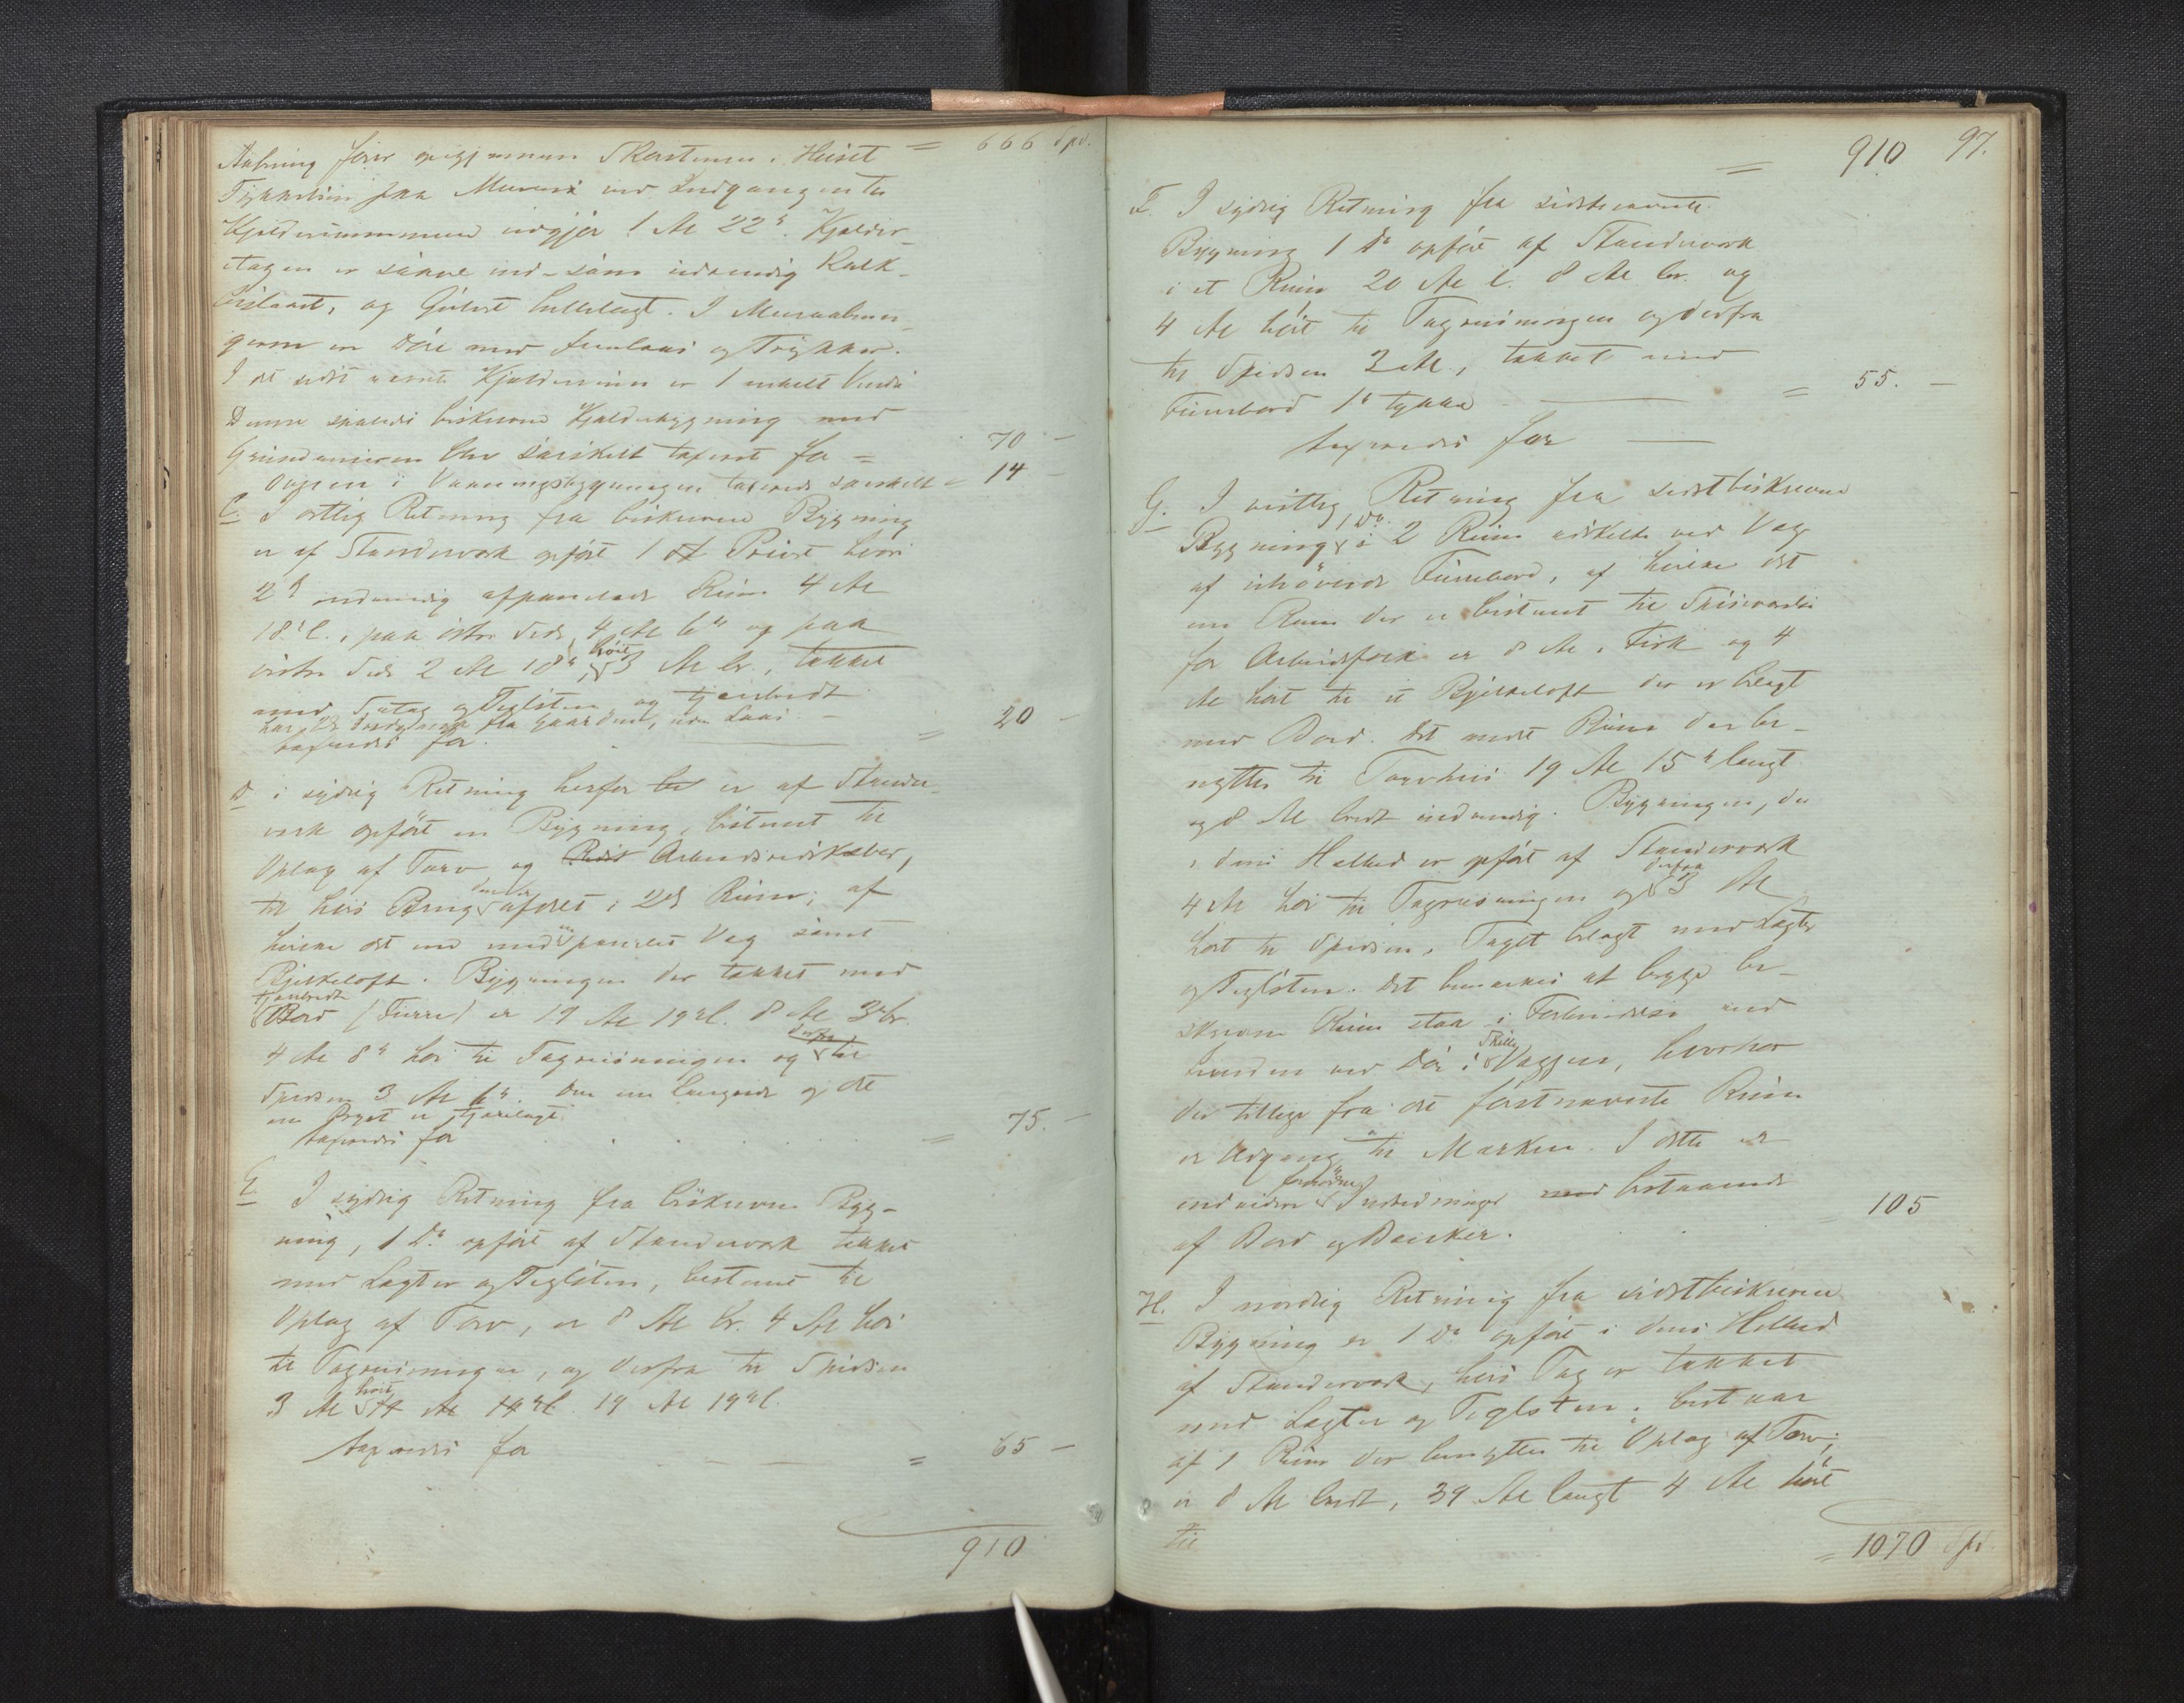 Aabning fører opigjennem Skorstenen. Huset = 666 Spd.
Tykkelsen paa Murene ved Indgangen til
Kjelderrummene udgjør 1 Al 22". Kjelder-
etagen er saavel ind- som udvendig Kalk-
og Gulvet hellelagt. I Muraabnin-
gerne er Døre med og Trykker.
I det sidst nævnte Kjelderrum er 1 enkelt Vindu
Denne saaledes beskrevne Kjelderbygning med
Grundmuren blev særskilt taxeret for = 70 -
Ovnen i Vaaningsbygningen taxeredes særskilt = 14 -
C. I østlig Retning fra beskrevne Bygning
er af Standerværk opført 1 et Privet hvori
2 indvendig afpanelede Rum 4 Al
18" l. paa østre Side 4 Al 6" og paa
vestre Side 2 Al 18" høit 3 Al br., tækket
med Sutag og Teglsten og tjærebredt
har 2de fra Gaarden, uden Laas -
taxeredes for = 20 -
D i sydlig Retning herfor er af Stander-
værk opført en Bygning, bestemt til
Oplag af Torv og Arbeidsredskaber,
til hvis Brug den er afdelt i 2de Rum; af
hvilke det ene med panelet Væg samt
Bjelkeloft. Bygningen der tækket med
tjærebredte
Bord (Furre) er 19 Al 19" l. 8 Al 3" br.
4 Al 8" høi til Tagreisningen og derfra til
Spidsen 3 Al 6". Den ene Langside og det
ene er tjærelagt
taxeredes for = 75. -
E. I sydlig Retning fra beskrevne Byg-
ning, 1 Do opført af Standerværk tækket
med Lægter og Teglsten, bestemt til
Oplag af Torv, er 8 Al br. 4 Al høi
til Tagreisningen, og derfra til Spidsen
3 Al høit 14 Al 14" l. 19 Al 19" l.
taxeredes for = 65 -
910
= 910 97.
F. I sydlig Retning fra sidstnævnte
Bygning 1 Do opført af Standerværk
i et Rum 20 Al l. 8 Al br. og
4 Al høit til Tagreisningen og derfra
til Spidsen 3 Al, tækket med
Furrebord 1" tykke = 55. -
taxeredes for
G. I vestlig Retning fra sidstbeskrevne
Bygning 1 Do i 2 Rum adskilte ved Væg
af uhøvlede Furrebord, af hvilke det
ene Rum der er bestemt til Spiseværelse
for Arbeidsfolk er 8 Al i Firk og 4
Al høit til et Bjelkeloft der er belagt
med Bord. Det andet Rum der be-
nyttes til Torvhuus 19 Al 15" langt
og 8 Al bredt indvendig. Bygningen, der
i dens Helhed er opført af Standerværk
4 Al høi til Tagreisningen og derfra 3 Al
høit til Spidsen, Taget belagt med Lægter
og Teglsten. Det bemærkes at begge be-
skrevne Rum staa i Forbindelse med
hinanden ved Dør i Skille Væggen, hvorhos
der tillige fra det førstnævnte Rum
er Udgang til Marken. I dette er
endvidere Indredninger med bestaaende
af Bord og Bænker. 105
H. I nordlig Retning fra sidstbeskrevne
Bygning er 1 Do opført i dens Helhed
af Standerværk, hvis Tag er tækket
med Lægter og Teglsten. bestaar
af 1 Rum der benyttes til Oplag af Torv;
er 8 Al bredt, 39 Al langt 4 Al høit
til
= 1070 Spd.